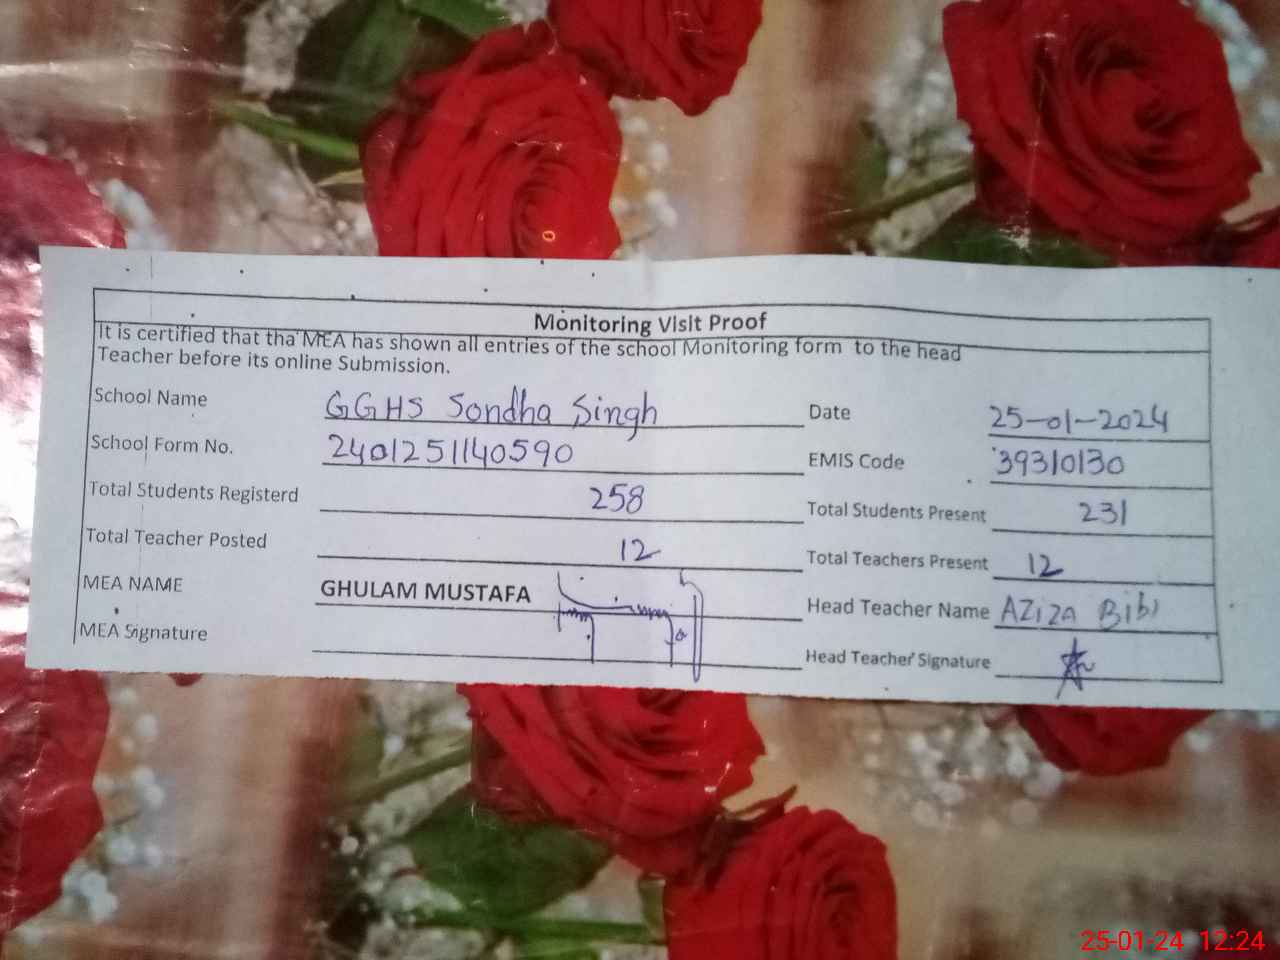 Monitoring Visit Proof
It is certified that tha MEA has shown all entries of the school Monitoring form to the head
Teacher before its online Submission.
School Name GGHS Sondha Singh Date 25-01-2024
School Form No. 2401251140590 EMIS Code 39310130
Total Students Registerd 258 Total Students Present 231
Total Teacher Posted 12 Total Teachers Present 12
MEA NAME GHULAM MUSTAFA Head Teacher Name AZiZA BiBi
MEA Signature Head Teacher Signature
25-01-24 12:24